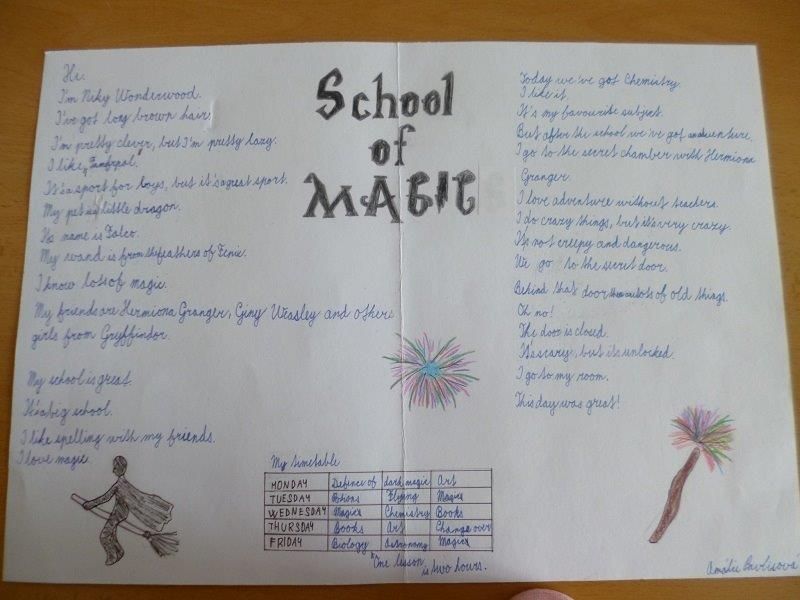 School
of
MAGIC
Hi.
I'm Niky Wonderwood.
I've got long brown hair.
I'm pretty clever, but I'm pretty lazy.
I like „Famfrpál."
It's a sport for boys, but it's a great sport.
My pet is little dragon.
Its name is Falco.
My wand is from the feathers of Fenix.
I know lots of magic.
My friends are Hermiona Granger, Giny Weasley and others
girls from Gryffindor.
My school is great.
It's a big school.
I like spelling with my friends.
I love magic.
My timetable
MONDAY Defence of dark magic Art
TUESDAY Potions Flying Magics
WEDNESDAY Magics Chemistry Books
THURSDAY Books Art Change over
FRIDAY Biology Astronomy Magics
*One lesson is two hours.
Today we've got Chemistry.
I like it.
It's my favourite subject.
But after the school we've got adventure.
I go to the secret chamber with Hermiona
Granger.
I love adventure without teachers.
I do crazy things, but it's very crazy.
It's not creepy and dangerous.
We go to the secret door.
Behind that door lots of old things.
Oh no!
The door is closed.
It's scary, but it's unlocked.
I go to my room.
This day was great!
Amálie Pavlisová